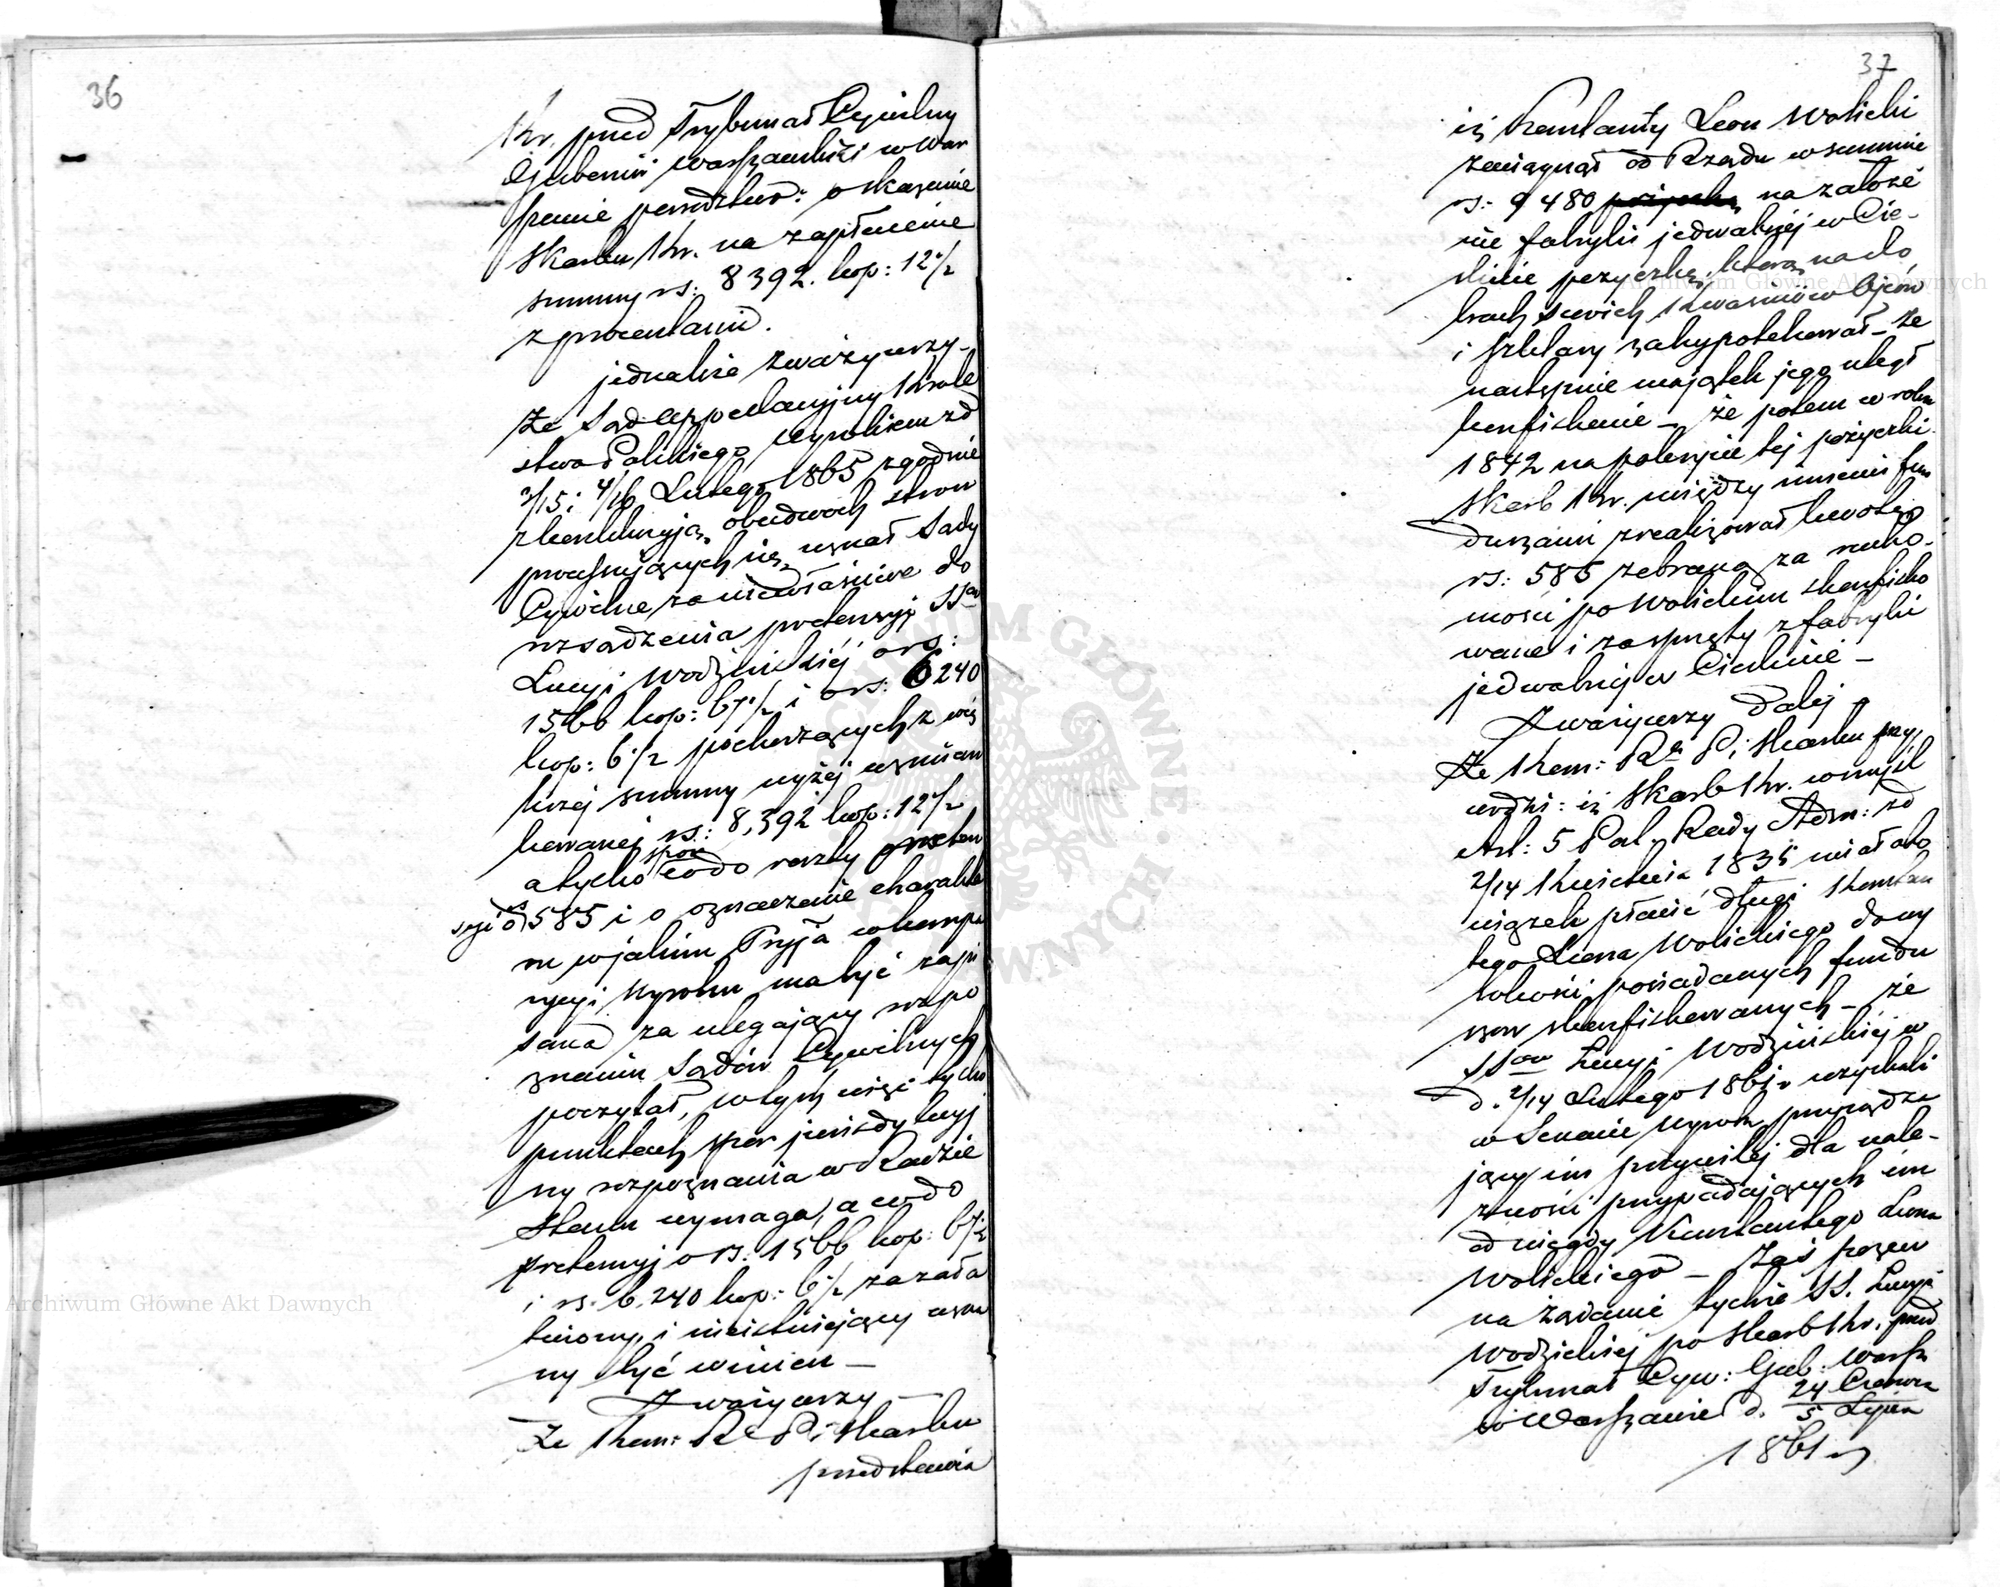 36
Kr. przed Trybunał Cywilny
Gubernii Warszawskiéj w War
szawie powództwo: o skazanie
Skarbu Kr. na zapłacenie
summy rs: 8392. kop: 12 1/2
z procentami.
jednakże zważywszy
Że Sąd Appellacyjny Króle
stwa Polskiego wyrokiem z d
3/15 i 4/16 Lutego 1865 zgodnie
z konkluzyją obudwóch stron
processujących się uznał Sądy
Cywilne za niewłaściwe do
rozsądzenia pretensyj SSrów
Lucyi Wodzińskiéj o rs:
1566 kop: 6 1/2 i o rs: 6240
kop: 6 1/2 pochodzących z wię
kszej summy wyżéj wzmian
kowanej rs: 8,392 kop: 12 1/2
a tylko spór co do reszty preten
syi o rs 585 i o oznaczenie charakte
ru w jakim Pryja w kompa
rycyi Wyroku ma być zapi
sana za ulegający rozpo
znaniu Sądów Cywilnych
poczytał, w tych więc tylko
punktach spór jurisdykcyj
ny rozpoznania w Radzie
Stanu wymaga, a co do
pretensyj o rs. 1566 kop: 6 1/2
i rs. 6,240 kop: 6 1/2 za zała
twiony i nieistniejący uzna
ny być winien —
Zważywszy —
Że Kom: R. P. i Skarbu
przedstawia
37
iż Konstanty Leon Wolicki
zaciągnął od Rządu w summie
rs: 9480 pożyczkę na założe
nie fabryki jedwabnéj w Cie-
linie pożyczkę, którą na do
brach swoich Kwasniów Ojców
i Szklary zahypotekował — że
następnie majątek jego uległ
konfiskacie — że potem w roku
1842 na pokrycie téj pożyczki
Skarb Kr. między innemi fun
duszami zrealizował kwotę
rs: 585 zebraną za rucho-
mości po Wolickim skonfisko
wane i za sprzęty z fabryki
jedwabnéj w Cielinie —
Zważywszy daléj
Że Kom: R. P. i Skarbu przy
wodzi: iż Skarb Kr. w myśl
Art: 5 Post. Rady Adm: z d
2/14 Kwietnia 1835 miał obo
wiązek płacić długi Konstan
tego Leona Wolickiego do wy
sokości posiadanych fundu
szów skonfiskowanych — że
SSrowie Lucyi Wodzińskiéj w
d. 2/14 Lutego 1861 r uzyskali
w Senacie Wyrok przysądza
jący im przywiléj dla nale-
żności przypadających im
od niegdy Konstantego Leona
Wolickiego — Zaś pozew
na żądanie tychże SS. Lucyi
Wodzińskiéj po Skarb Kr. przed
Trybunał Cyw: Gub: Warsz
w Warszawie d. 24 Czerwca
5 Lipca
1861 r
Archiwum Główne Akt Dawnych
Archiwum Główne Akt Dawnych
ARCHIWUM GŁÓWNE AKT DAWNYCH